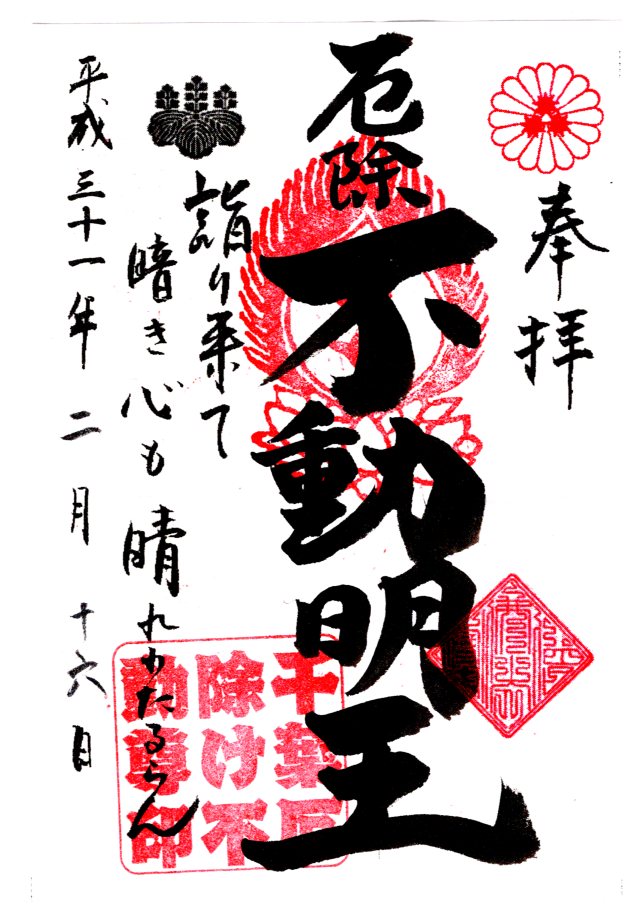 奉拝
厄除
不動明王
詣り来て
暗き心も晴れわたるらん
平成三十一年二月十六日
千葉厄
除け不
動尊印